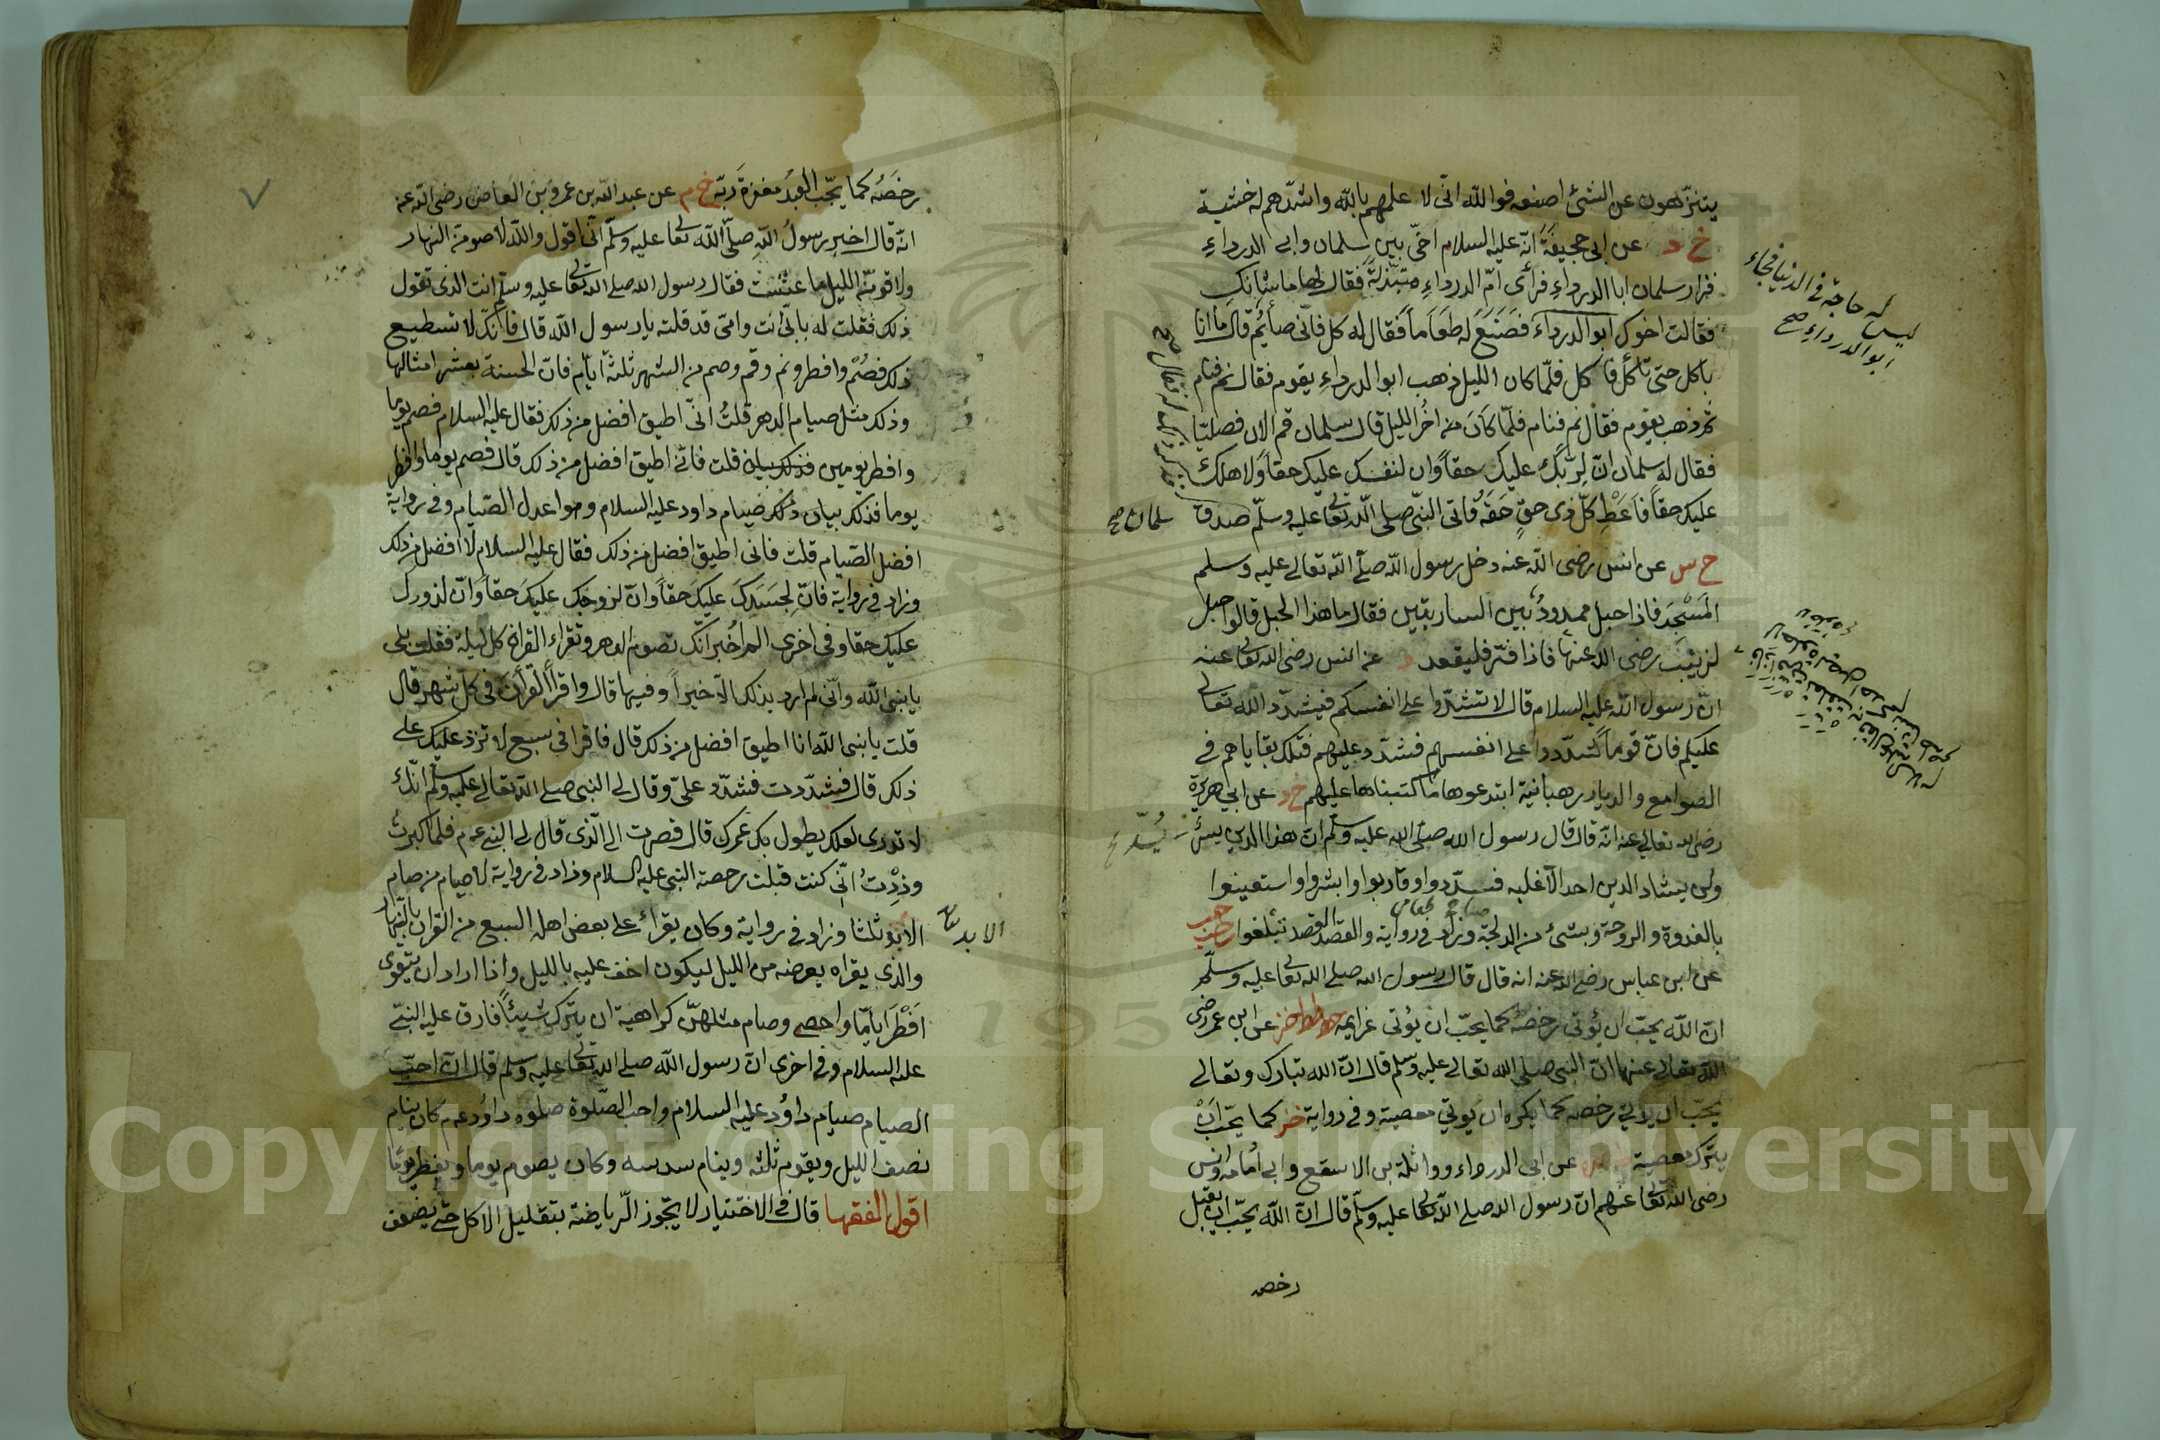 يتنزهون عن الشئ اصنعه فوالله انى لا علمهم بالله واشدهم له خشية
خ د عن ابى جحيفة انه عليه السلام اخى بين سلمان وابى الدرداء
فزار سلمان ابا الدرداء فراى ام الدرداء متبذلة فقال لها ما شانك
فقالت اخوك ابو الدرداء فصنع له طعاما فقال له كل فانى صائم قال ما انا
باكل حتى تاكل فاكل فلما كان الليل ذهب ابو الدرداء يقوم فقال نم فنام
ثم ذهب يقوم فقال نم فنام فلما كان من اخر الليل قال سلمان قم الان فصليا
فقال له سلمان ان لربك عليك حقا وان لنفسك عليك حقا ولاهلك
عليك حقا فاعط كل ذى حق حقه فاتى النبى صلى الله تعا عليه وسلم صدق
سلمان صح
ليس له حاجة فى الدنيا فجاء
ابو الدرداء صح
خ س عن انس رضى الله عنه دخل رسول الله صلى الله تعالى عليه وسلم
المسجد فاذا حبل ممدود بين الساريتين فقال ما هذا الحبل قالوا حبل
لزينب رضى الله عنها فاذا فتر فليقعد د عن انس رضى الله تعالى عنه
ان رسول الله عليه السلام قال لا تشددوا على انفسكم فيشدد الله تعالى
عليكم فان قوما شددوا على انفسهم فشدد عليهم فتلك بقاياهم فى
الصوامع والديار رهبانية ابتدعوها ما كتبناها عليهم خ د عن ابى هريرة
رضى الله تعالى عنه انه قال قال رسول الله صلى الله عليه وسلم ان هذا الدين يسر
ولن يشاد الدين احد الا غلبه فسددوا وقاربوا وابشروا واستعينوا
بالغدوة والروحة وبشئ من الدلجة وزاد فى رواية والقصد القصد تبلغوا
عن ابن عباس رضى الله عنه انه قال قال رسول الله صلى الله تعا عليه وسلم
ان الله يحب ان يؤتى رخصه كما يحب ان يؤتى عزايمه عن ابن عمر رضى
الله تعالى عنهما ان النبى صلى الله تعالى عليه وسلم قال ان الله تبارك وتعالى
يحب ان يؤتى رخصه كما يكره ان يؤتى معصية وفى رواية خز كما يحب ان
يترك معصية عن ابى الدرداء وواثلة بن الاسقع وابى امامة وانس
رضى الله تعا عنهم ان رسول الله صلى الله تعا عليه وسلم قال ان الله يحب ان يقبل
رخص
رخصه كما يحب العبد مغفرة ربه خ م عن عبد الله بن عمرو بن العاص رضى الله عنه
انه قال اخبر رسول الله صلى الله تعا عليه وسلم انى اقول والله لاصومن النهار
ولاقومن الليل ما عشت فقال رسول الله صلى الله تعا عليه وسلم انت الذى تقول
ذلك فقلت له بابى انت وامى قد قلته يا رسول الله قال فانك لا تسطيع
ذلك فصم وافطر ونم وقم وصم من الشهر ثلثة ايام فان الحسنة بعشر امثالها
وذلك مثل صيام الدهر قلت انى اطيق افضل من ذلك فقال عليه السلام فصم يوما
وافطر يومين قلت فانى اطيق افضل من ذلك قال فصم يوما وافطر
يوما فذلك صيام داود عليه السلام وهو اعدل الصيام وفى رواية
افضل الصيام قلت فانى اطيق افضل من ذلك فقال عليه السلام لا افضل من ذلك
وزاد فى رواية فان لجسدك عليك حقا وان لزوجك عليك حقا وان لزورك
عليك حقا وفى اخرى الم اخبر انك تصوم الدهر وتقراء القران كل ليلة فقلت بلى
يا نبى الله وانى لم ارد بذلك الا خيرا وفيها قال واقرا القرآن فى كل شهر قال
قلت يا نبى الله انا اطيق افضل من ذلك قال فاقرا فى سبع لا تزد عليك على
ذلك قال فشددت فشدد على وقال لى النبى صلى الله تعالى عليه وسلم انك
لا تدرى لعلك يطول بك عمرك قال فصرت الى الذى قال لى النبى عم فلما كبرت
وددت انى كنت قبلت رخصة النبى عليه السلام وزاد فى رواية لا صيام من صام
الابد صح
الابد ثلثا وزاد فى رواية وكان يقراء على بعض اهله السبع من القران بالنهار
والذى يقراه يعرضه من الليل ليكون اخف عليه بالليل واذا اراد ان يتقوى
افطر اياما واحصى وصام مثلهن كراهية ان يترك شيئا فارق عليه النبى
عليه السلام وفى اخرى ان رسول الله صلى الله تعا عليه وسلم قال ان احب
الصيام صيام داود عليه السلام واحب الصلوة صلوة داود عم كان ينام
نصف الليل ويقوم ثلثه وينام سدسه وكان يصوم يوما ويفطر يوما
اقول الفقها قال فى الاختيار لا يجوز الرياضة بتقليل الاكل حتى يضعف
Copyright © King Saud University
195